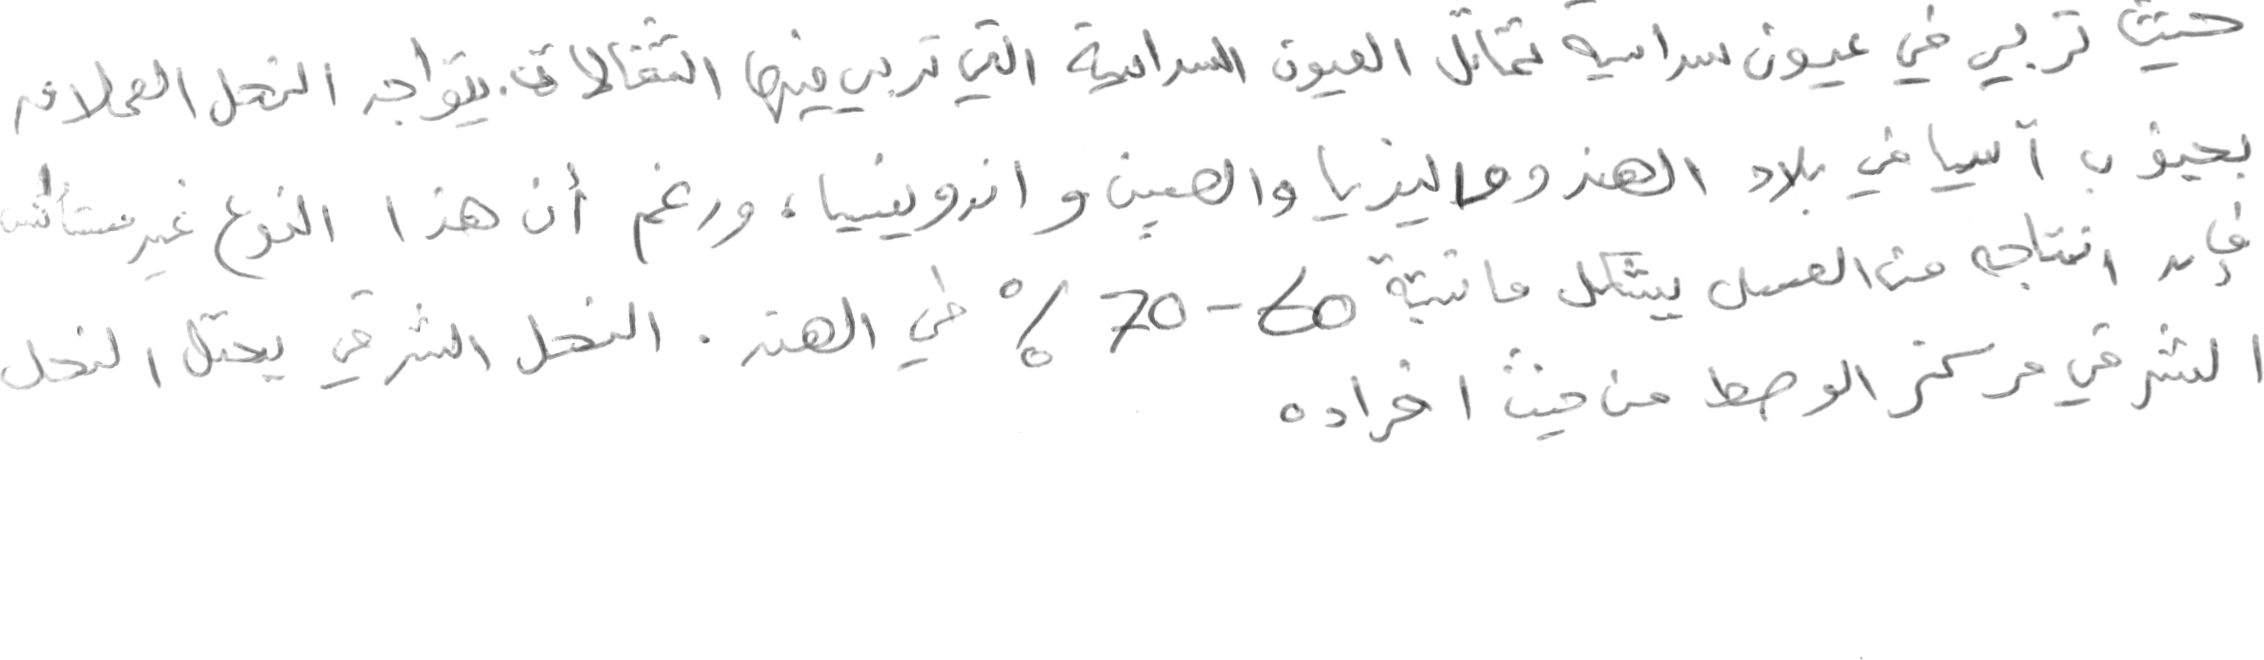 حيث تربي في عيون سداسية تماثل العيون السداسية التي تربي فيها الشغالات. يتواجد النحل العملاق
بجنوب آسيا في بلاد الهند وماليزيا والصين واندونيسيا، ورغم أن هذا النوع غير مستأنس
فإن انتاجه من العسل يشكل ما نسبته 60-70 % في الهند. النحل الشرقي يحتل النحل
الشرقي مركز الوسط من حيث افراده